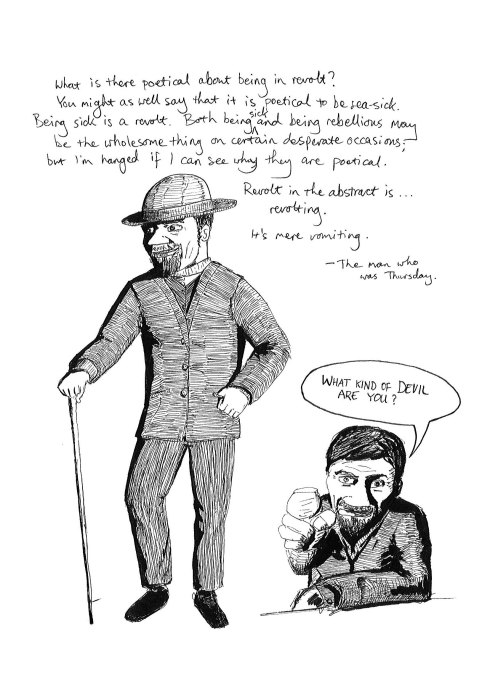 What is there poetical about being in revolt?
You might as well say that it is poetical to be sea-sick.
Being sick is a revolt. Both being sick and being rebellious may
be the wholesome thing on certain desperate occasions;
but I'm hanged if I can see why they are poetical.
Revolt in the abstract is...
revolting.
It's mere vomiting.
- The man who
was Thursday.
WHAT KIND OF DEVIL
ARE YOU?